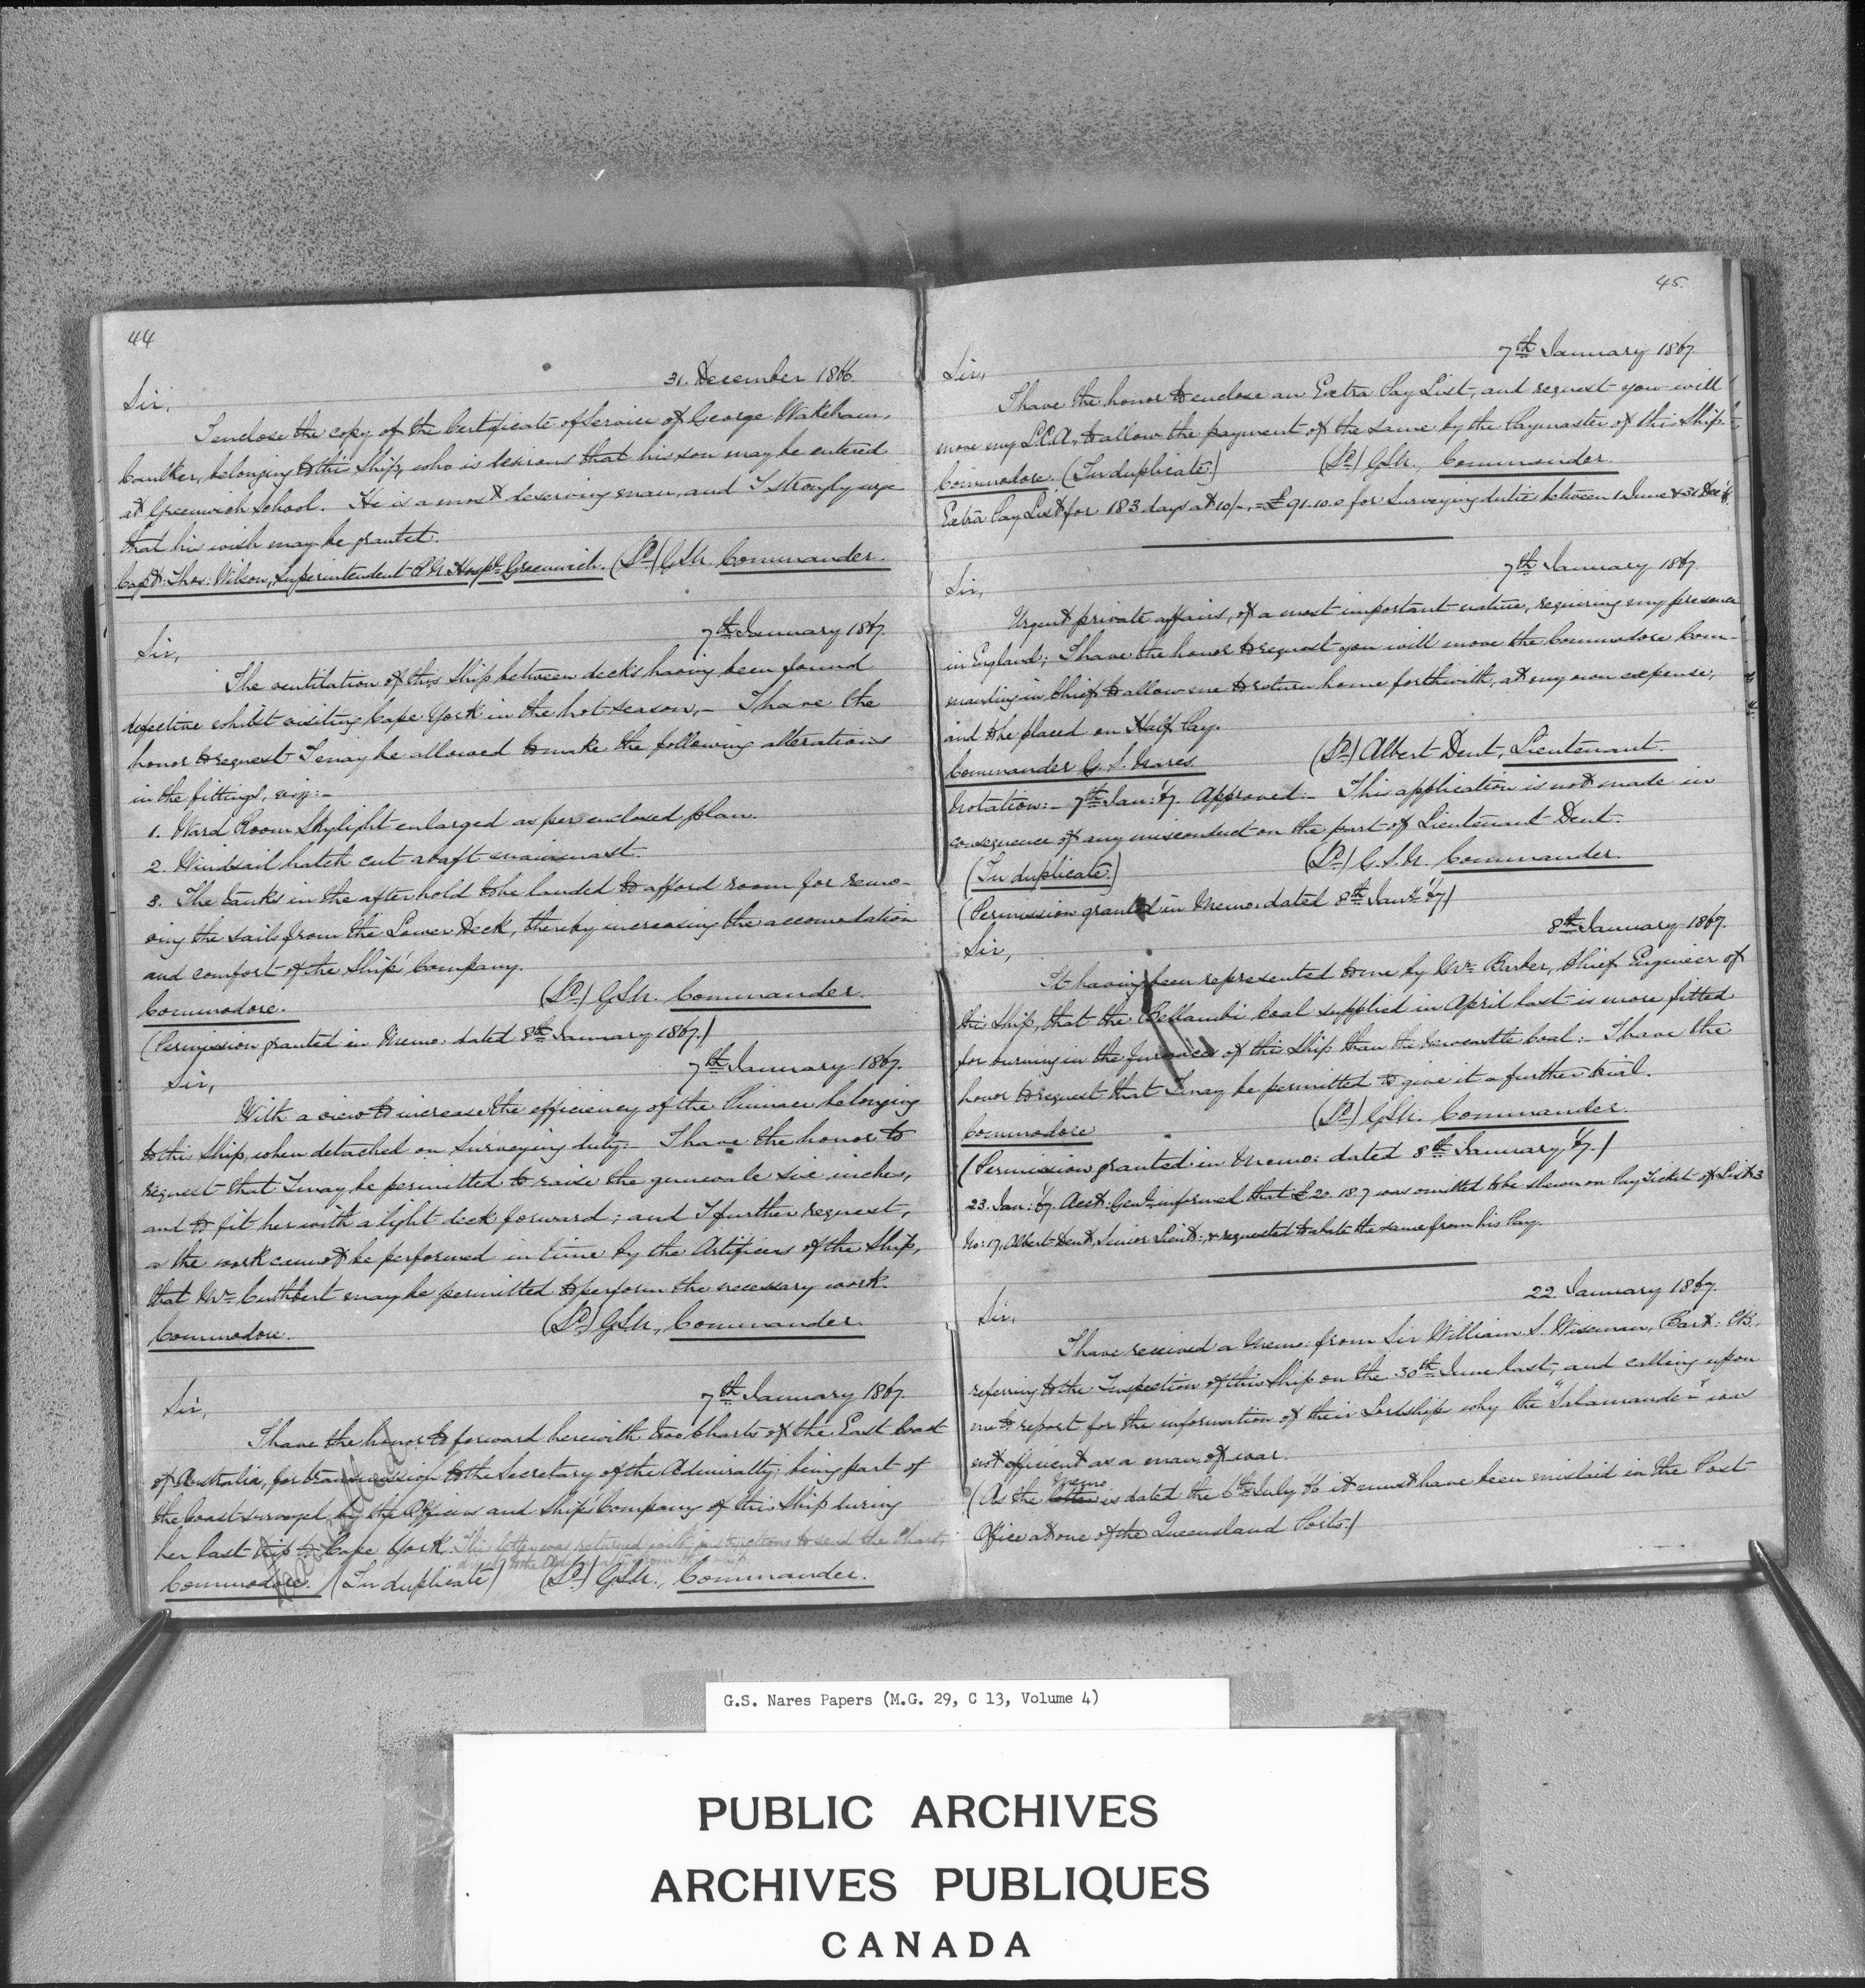 44
31. December 1866.
Sir,
I enclose the copy of the Certificate of Service of George Wakeham,
Caulker, belonging to this Ship, who is desirous that his son may be entered
at Greenwich School. He is a most deserving man, and I strongly urge
that his wish may be granted.
Capt: Thos: Wilson, Superintendent R.N. Hospl. Greenwich. (Sd) GSN. Commander.
7th January 1867.
Sir,
The ventilation of this Ship between decks having been found
defective whilst visiting Cape York in the hot season,— I have the
honor to request I may be allowed to make the following alterations
in the fittings, viz:—
1. Ward Room Skylight enlarged as per enclosed plan.
2. Windsail hatch cut abaft mainmast.
3. The tanks in the after hold to be landed to afford room for remo-
ving the sails from the Lower Deck, thereby increasing the accomodation
and comfort of the Ship's Company.
Commodore. (Sd) GSN. Commander.
(Permission granted in Memo: dated 8th January 1867.)
7th January 1867.
Sir,
With a view to increase the efficiency of the Pinnace belonging
to this Ship, when detached on Surveying duty:— I have the honor to
request that I may be permitted to raise the gunwale six inches,
and to fit her with a light deck forward; and I further request,
as the work cannot be performed in time by the Artificers of the Ship,
that Mr. Cuthbert may be permitted to perform the necessary work.
Commodore. (Sd) GSN, Commander.
7th January 1867.
Sir,
I have the honor to forward herewith two Charts of the East Coast
of Australia, for transmission to the Secretary of the Admiralty; being part of
the Coast surveyed by the Officers and Ship's Company of this Ship during
her last trip to Cape York. This letter was returned with instructions to send the Charts
direct to the Admiralty
Commodore. (In duplicate) (Sd) GSN., Commander.
45.
7th January 1867.
Sir,
I have the honor to enclose an Extra Pay List, and request you will
move my L.C.A., to allow the payment of the same by the Paymaster of this Ship.
Commodore. (In duplicate.) (Sd) GSN., Commander.
Extra Pay List for 183 days at 10/-, = £91.10.0 for Surveying duties between 1 June & 31 Dec '66.
7th January 1867.
Sir,
Urgent private affairs, of a most important nature, requiring my presence
in England; I have the honor to request you will move the Commodore Com-
manding in Chief to allow me to return home forthwith, at my own expense,
and to be placed on Half Pay.
Commander G. S. Nares. (Sd) Albert Dent, Lieutenant.
Notation:— 7th Jan: '67. Approved.— This application is not made in
consequence of any misconduct on the part of Lieutenant Dent.
(In duplicate.) (Sd) G.S.N. Commander.
(Permission granted in Memo. dated 8th Jany. '67)
8th January 1867.
Sir,
It having been represented to me by Mr. Barber, Chief Engineer of
this Ship, that the Bellambi Coal supplied in April last is more fitted
for burning in the furnaces of this Ship than the Newcastle Coal:— I have the
honor to request that I may be permitted to give it a further trial.
Commodore (Sd) GSN. Commander.
(Permission granted in Memo: dated 8th January, '67.)
23. Jan: '67. Acct: Genl. informed that £20.18.7 was omitted to be shewn on Pay Ticket of List 3
No: 17, Albert Dent, Senior Lieut:, & requested to abate the same from his Pay.
22 January 1867.
Sir,
I have received a Memo. from Sir William S. Wiseman, Bart: CB,
referring to the Inspection of this Ship on the 30th June last, and calling upon
me to report for the information of their Lordships why the "Salamander" was
not efficient as a man of war.
(As the letter Memo is dated the 6th July 66 it must have been mislaid in the Post
Office at one of the Queensland Ports.)
G.S. Nares Papers (M.G. 29, C 13, Volume 4)
PUBLIC ARCHIVES
ARCHIVES PUBLIQUES
CANADA